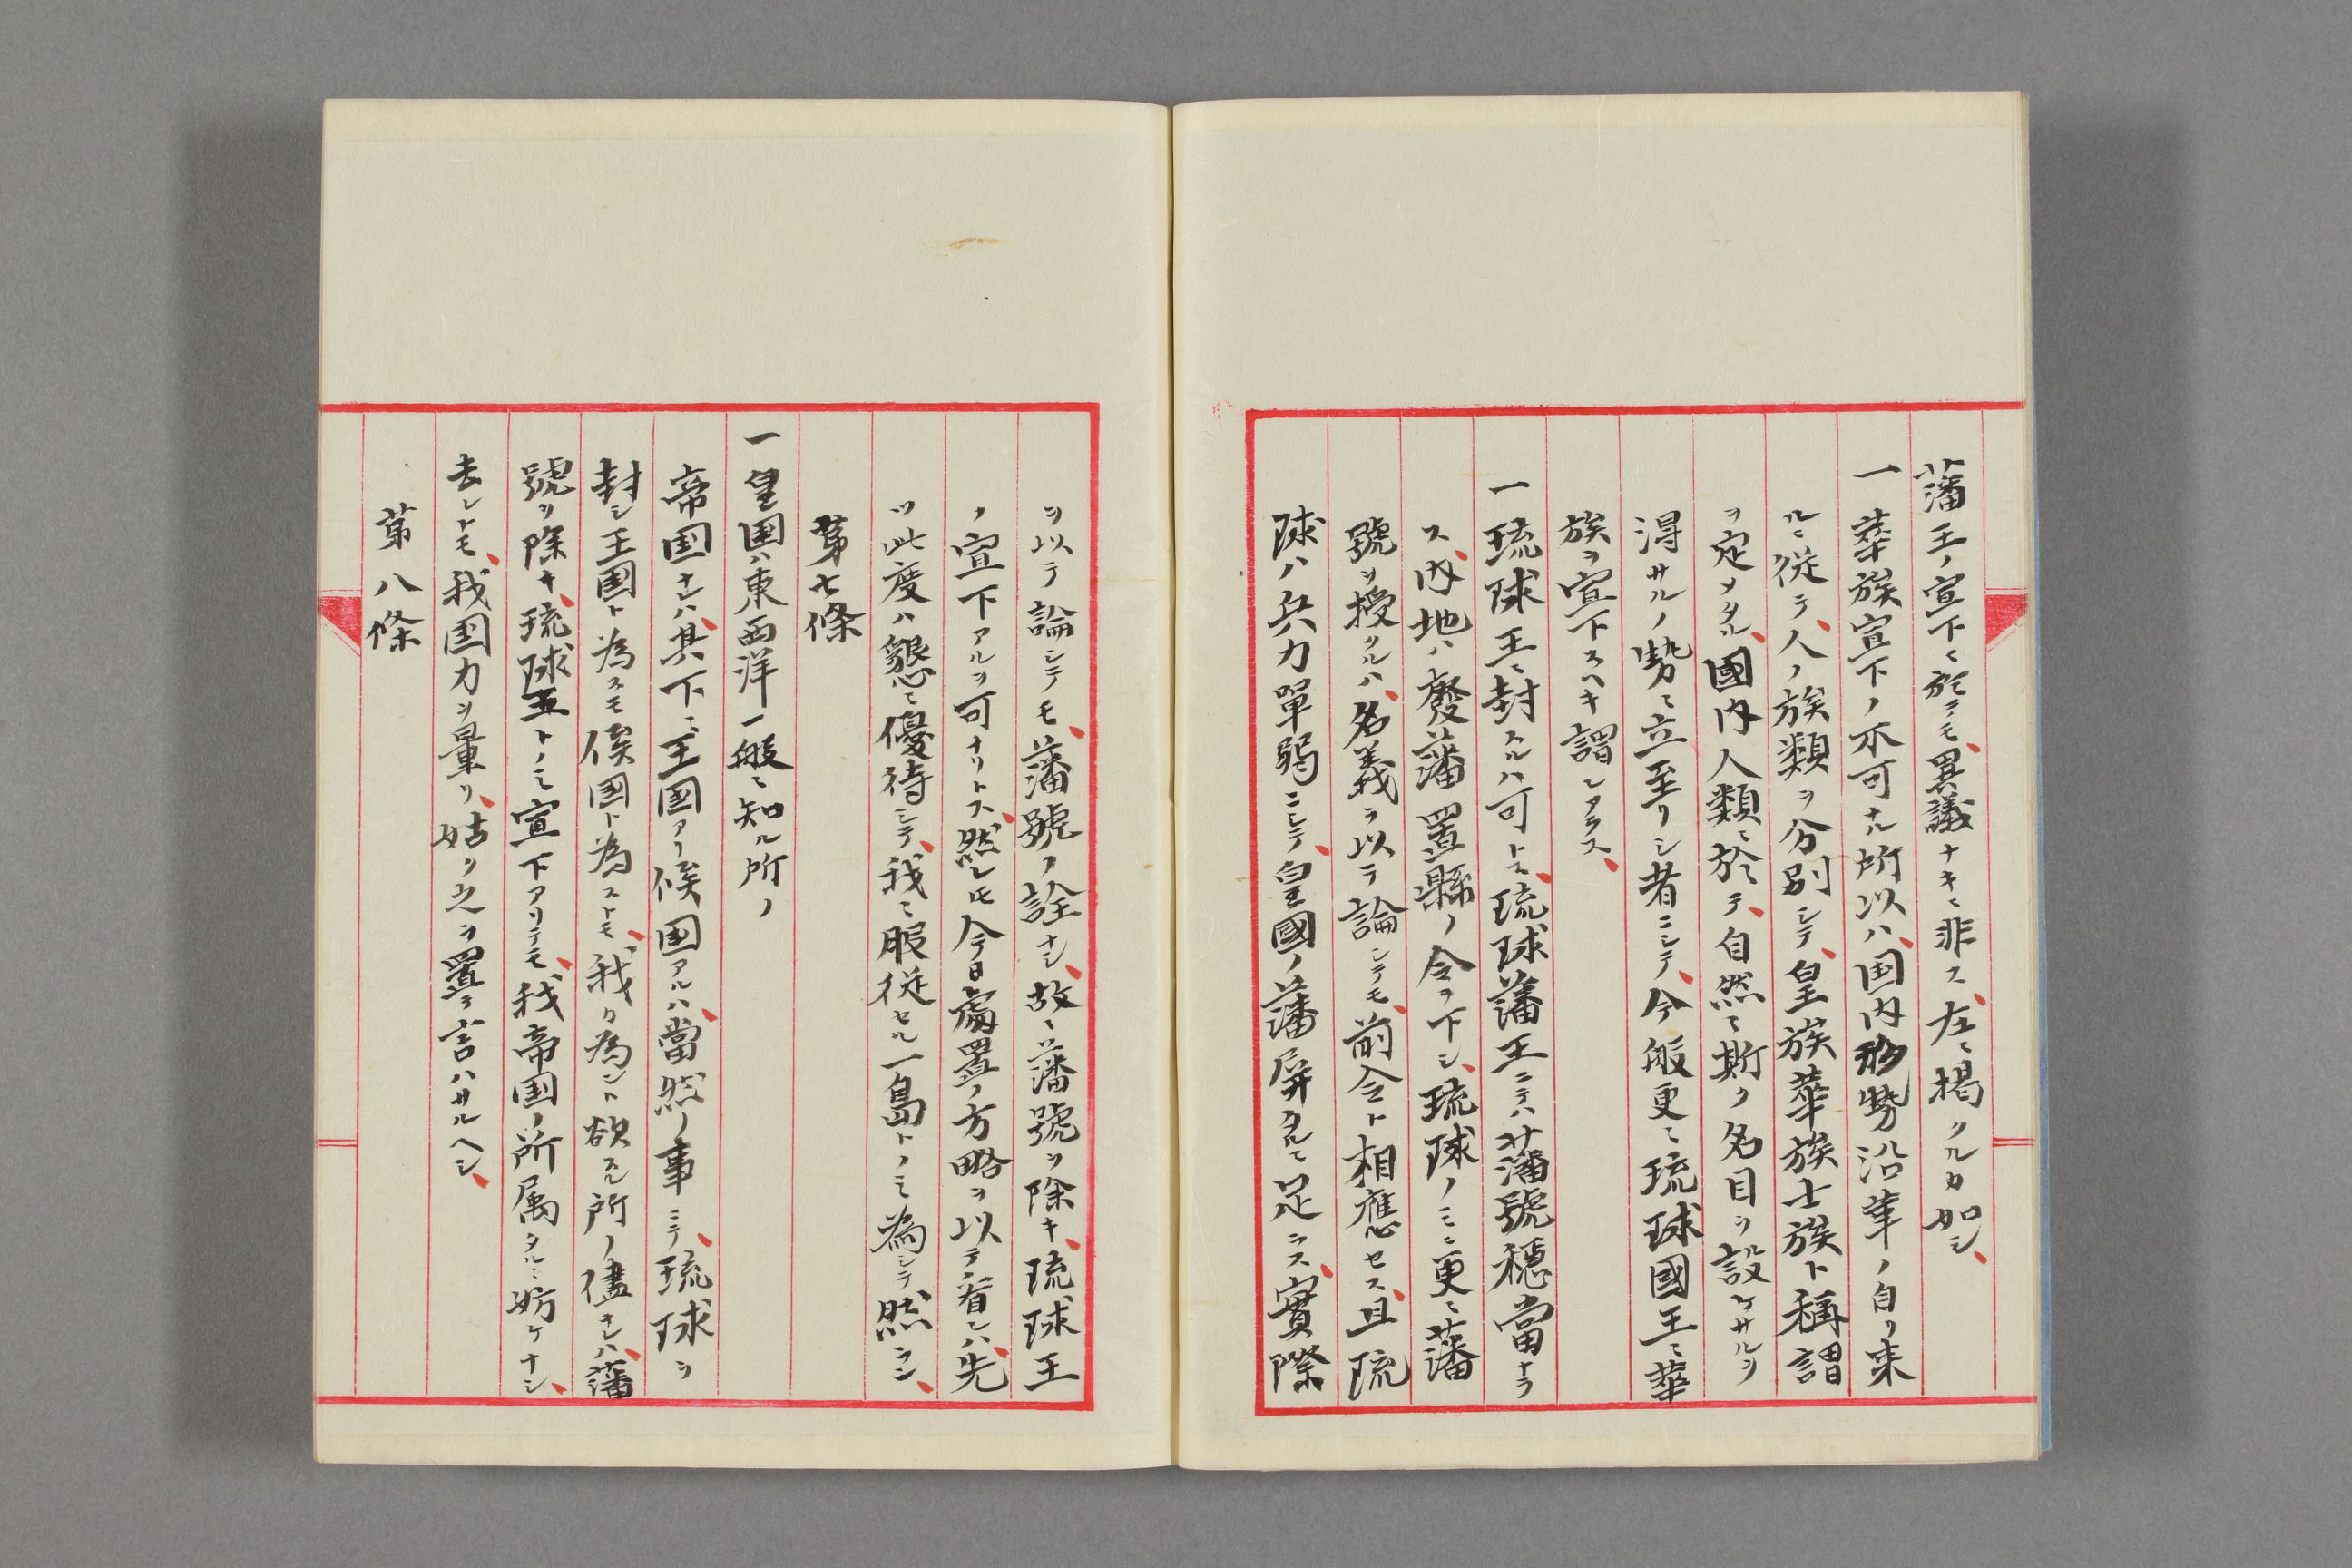 藩王ノ宣下ニ於テモ、異議ナキニ非ス、左ニ掲クルカ如シ、
一華族宣下ノ不可ナル所以ハ、国内形勢沿革ノ自リ来
ルニ従テ、人ノ族類ヲ分別シテ、皇族華族士族ト稱謂
ヲ定メタル、國内人類ニ於テ、自然ニ斯ク名目ヲ設ケサルヲ
得サルノ勢ニ立至リシ者ニシテ、今般更ニ琉球國王ニ華
族ヲ宣下スヘキ謂レアラス、
一琉球王ニ封スルハ可トス、琉球藩王ニテハ藩號穏當ナラ
ス、内地ハ廢藩置縣ノ令ヲ下シ、琉球ノミニ更ニ藩
號ヲ授クルハ、名義ヲ以テ論シテモ、前令ト相應セス、且琉
球ハ兵力單弱ニシテ、皇國ノ藩屏タルニ足ラス、實際
ヲ以テ論シテモ、藩號ノ詮ナシ、故ニ藩號ヲ除キ、琉球王
ノ宣下アルヲ可ナリトス、然レ𪜈今日處置ノ方略ヲ以テ看レハ、先
ツ此度ハ懇ニ優待シテ、我ニ服従セル一島トノミ為シテ然ラン、
第七條
一皇国ハ東西洋一般ニ知ル所ノ
帝国ナレハ、其下ニ王國アリ侯国アルハ、當然ノ事ニテ、琉球ヲ
封シ王国ト為スモ侯国ト為ストモ、我カ為ント欲スル所ノ儘ナレハ、藩
號ヲ除キ、琉球王トノミ宣下アリテモ、我帝国ノ所属タルニ妨ケナシ、
去レトモ、我国力ヲ量リ、姑ク之ヲ置テ言ハサルヘシ、
第八條